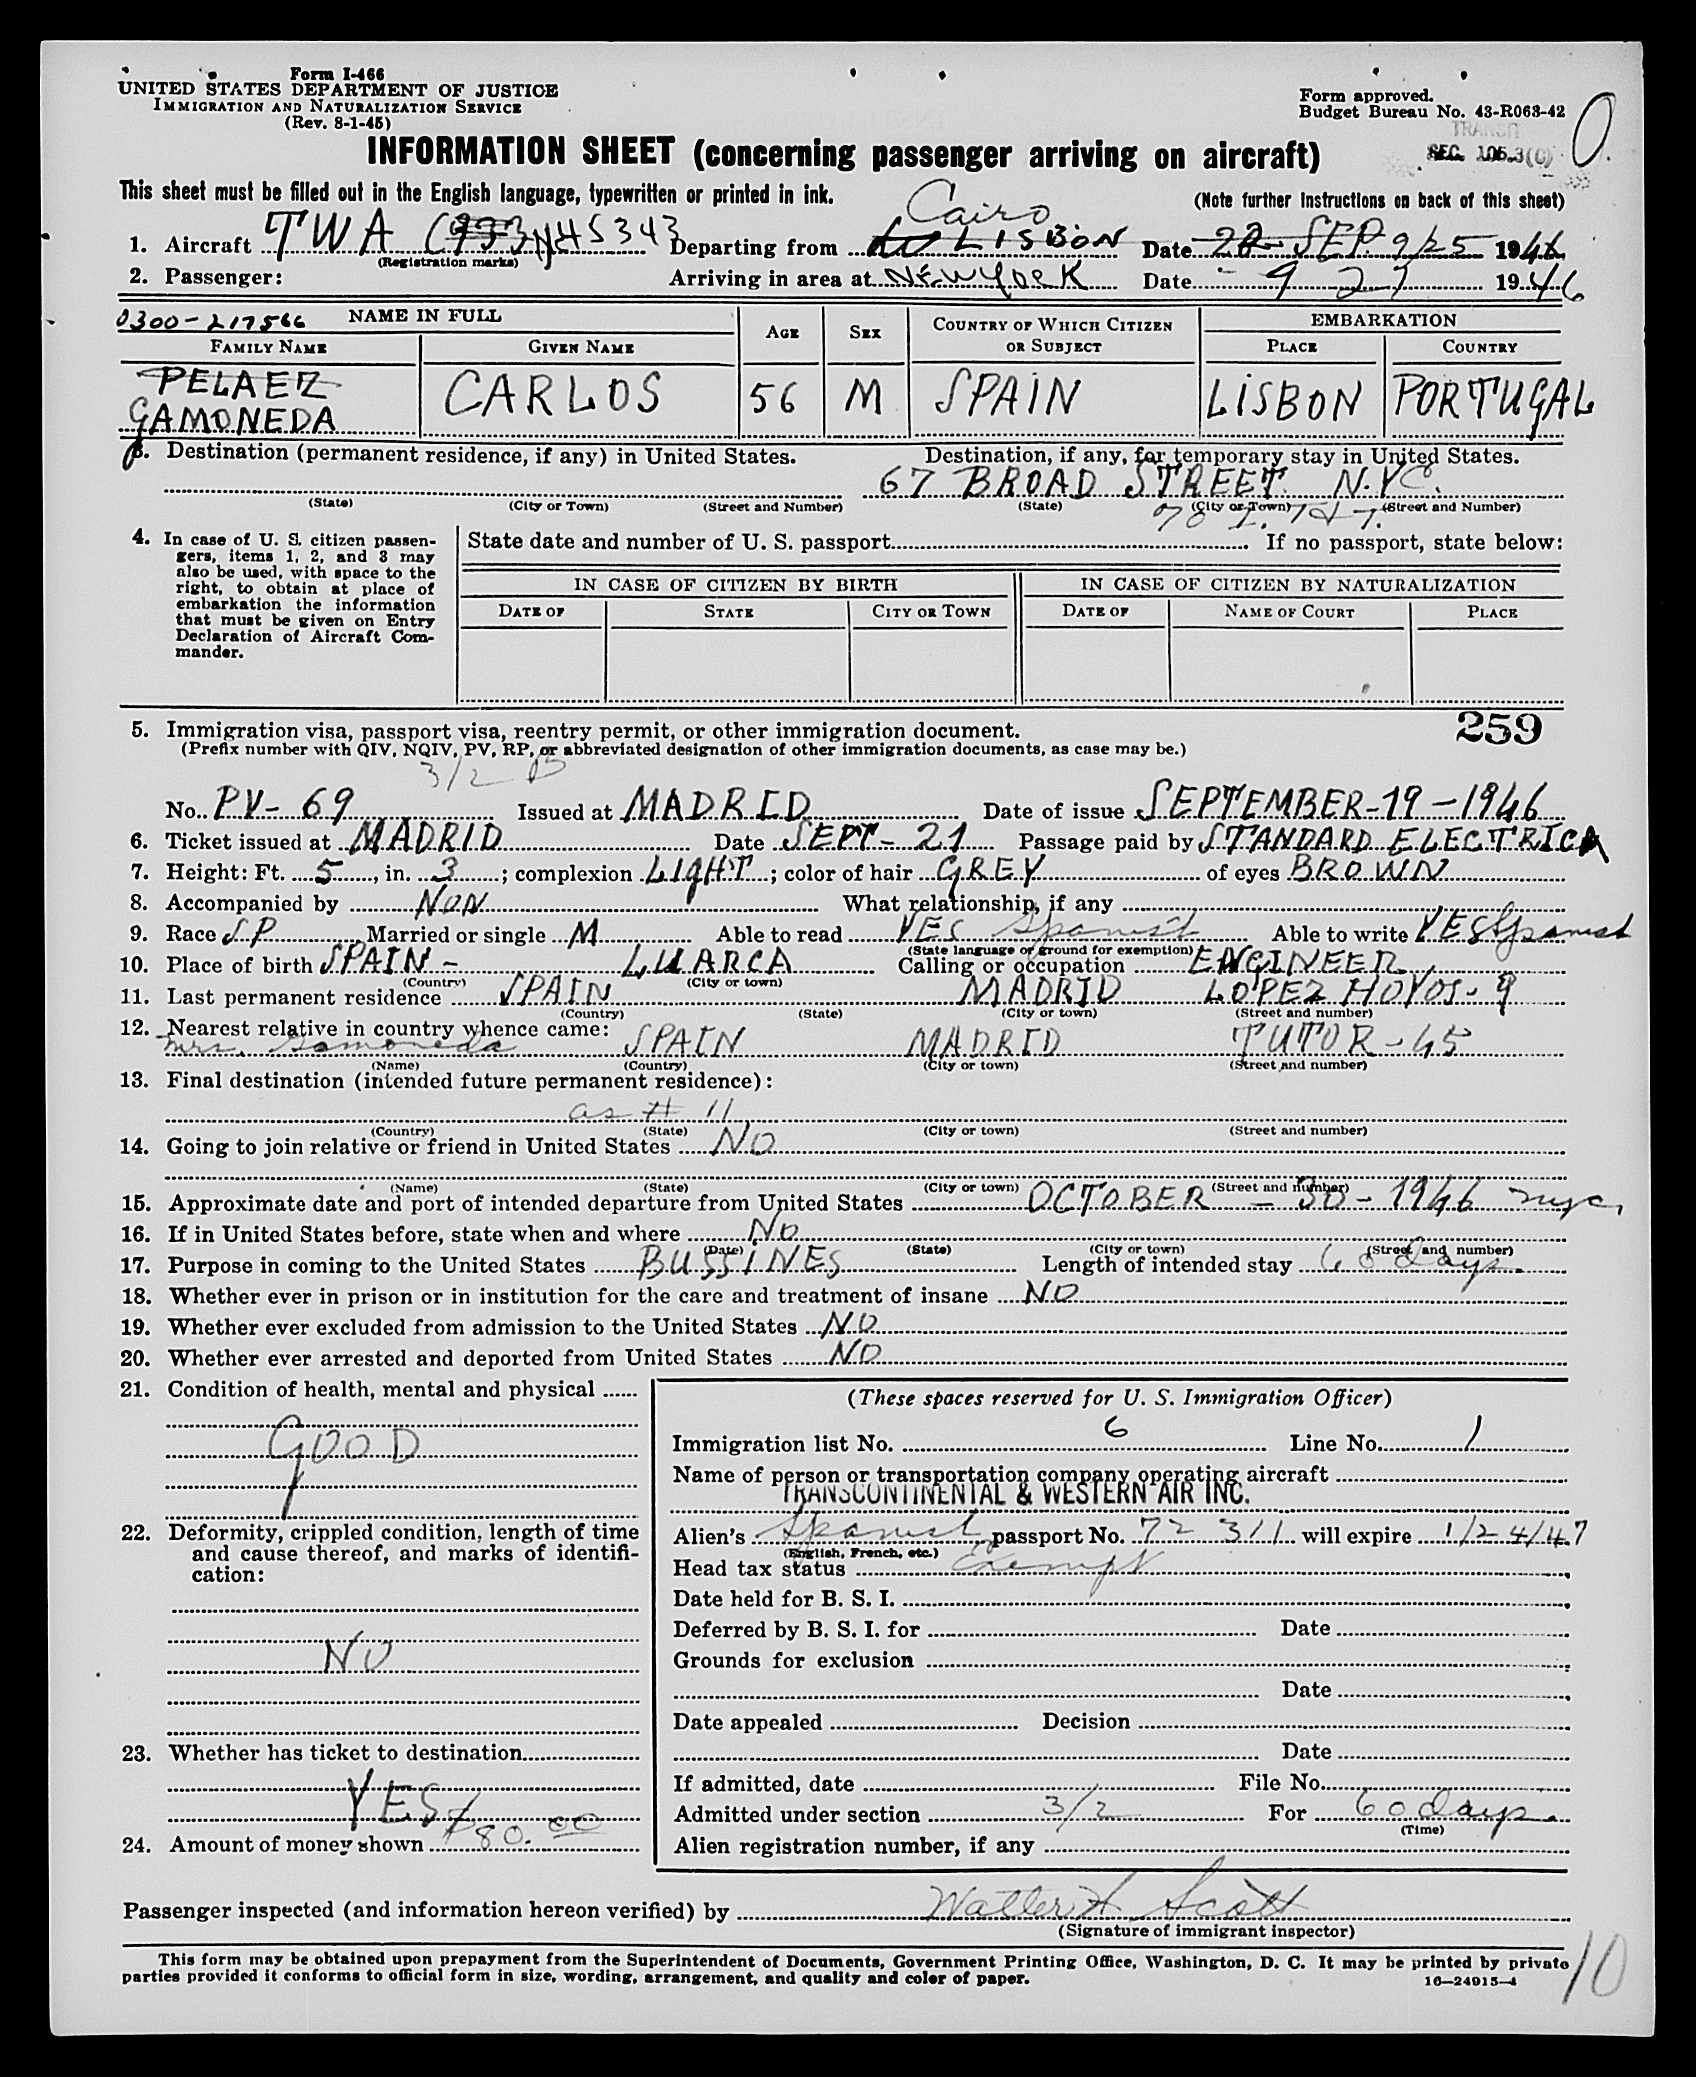 Form I-466
UNITED STATES DEPARTMENT OF JUSTICE
IMMIGRATION AND NATURALIZATION SERVICE
(Rev. 8-1-45)
Form approved.
Budget Bureau No. 43-R063-42
TRANSIT
SEC. 105.3(C)
INFORMATION SHEET (concerning passenger arriving on aircraft)
This sheet must be filled out in the English language, typewritten or printed in ink.
(Note further instructions on back of this sheet)
Cairo
1. Aircraft TWA N45343 Departing from LISBON Date 22 SEP. 9/25 1946
(Registration marks)
2. Passenger: Arriving in area at NEW YORK Date 9 27 1946
0300-217566 NAME IN FULL AGE SEX COUNTRY OF WHICH CITIZEN OR SUBJECT EMBARKATION
FAMILY NAME GIVEN NAME PLACE COUNTRY
PELAEZ
GAMONEDA CARLOS 56 M SPAIN LISBON PORTUGAL
3. Destination (permanent residence, if any) in United States. Destination, if any, for temporary stay in United States.
67 BROAD STREET N.Y.C.
(State) (City or Town) (Street and Number) (State) (City or Town) (Street and Number)
4. In case of U. S. citizen passengers, items 1, 2, and 3 may also be used, with space to the right, to obtain at place of embarkation the information that must be given on Entry Declaration of Aircraft Commander.
State date and number of U. S. passport If no passport, state below:
IN CASE OF CITIZEN BY BIRTH IN CASE OF CITIZEN BY NATURALIZATION
DATE OF STATE CITY OR TOWN DATE OF NAME OF COURT PLACE
259
5. Immigration visa, passport visa, reentry permit, or other immigration document.
(Prefix number with QIV, NQIV, PV, RP, or abbreviated designation of other immigration documents, as case may be.)
3/2 B
No. PV-69 Issued at MADRID Date of issue SEPTEMBER-19-1946
6. Ticket issued at MADRID Date SEPT-21 Passage paid by STANDARD ELECTRICA
7. Height: Ft. 5, in. 3; complexion LIGHT; color of hair GREY of eyes BROWN
8. Accompanied by NON What relationship, if any
9. Race SP Married or single M Able to read YES Spanish Able to write YES Spanish
(State language or ground for exemption)
10. Place of birth SPAIN - LUARCA Calling or occupation ENGINEER
(Country) (City or town)
11. Last permanent residence SPAIN MADRID LOPEZ HOYOS-9
(Country) (State) (City or town) (Street and number)
12. Nearest relative in country whence came:
Mrs. Gamoneda SPAIN MADRID TUTOR-45
(Name) (Country) (City or town) (Street and number)
13. Final destination (intended future permanent residence):
as # 11
(Country) (State) (City or town) (Street and number)
14. Going to join relative or friend in United States NO
(Name) (State) (City or town) (Street and number)
15. Approximate date and port of intended departure from United States OCTOBER - 30 - 1946 nyc,
16. If in United States before, state when and where NO
(Date) (State) (City or town) (Street and number)
17. Purpose in coming to the United States BUSSINES Length of intended stay 60 days.
18. Whether ever in prison or in institution for the care and treatment of insane NO
19. Whether ever excluded from admission to the United States NO
20. Whether ever arrested and deported from United States NO
21. Condition of health, mental and physical
GOOD
22. Deformity, crippled condition, length of time and cause thereof, and marks of identification:
NO
23. Whether has ticket to destination
YES
24. Amount of money shown $80.00
(These spaces reserved for U. S. Immigration Officer)
Immigration list No. 6 Line No. 1
Name of person or transportation company operating aircraft
TRANSCONTINENTAL & WESTERN AIR INC.
Alien's Spanish passport No. 72 311 will expire 1/24/47
(English, French, etc.)
Head tax status Exempt
Date held for B. S. I.
Deferred by B. S. I. for Date
Grounds for exclusion
Date
Date appealed Decision
Date
If admitted, date File No.
Admitted under section 3/2 For 60 days
(Time)
Alien registration number, if any
Passenger inspected (and information hereon verified) by Walter A Scott
(Signature of immigrant inspector)
This form may be obtained upon prepayment from the Superintendent of Documents, Government Printing Office, Washington, D. C. It may be printed by private
parties provided it conforms to official form in size, wording, arrangement, and quality and color of paper.
16—24915-4
10